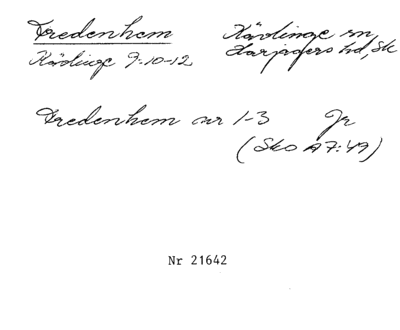 Fredenhem Kävlinge sn,
Kävlinge 9:10-12 Harjagers hd, Sk
Fredenhem nr 1-3 Jr
(Sko A7:49)
Nr 21642